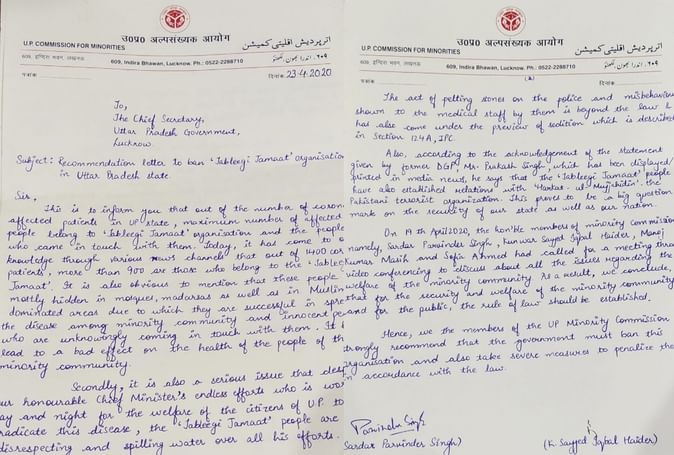 उ०प्र० अल्पसंख्यक आयोग
اتر پردیش اقلیتی کمیشن
U.P. COMMISSION FOR MINORITIES
609, इन्दिरा भवन, लखनऊ
609, Indira Bhawan, Lucknow. Ph.: 0522-2288710
पत्रांक
दिनांक 23.4.2020
To,
The Chief Secretary,
Uttar Pradesh Government,
Lucknow.
Subject: Recommendation letter to ban 'Tableegi Jamaat' organisation
in Uttar Pradesh state.
Sir,
This is to inform you that out of the number of coron
affected patients in UP state, maximum number of affected
people belong to 'Tableegi Jamaat' organisation and the people
who came in touch with them. Today, it has come to o
knowledge through various news channels that out of 1400 cor
patients, more than 900 are those who belong to the 'Tablee
Jamaat'. It is also obvious to mention that these people
mostly hidden in mosques, madarsas as well as in Muslim
dominated areas due to which they are successful in spre
the disease among minority community and innocent pe
who are unknowingly coming in touch with them. It
lead to a bad effect on the health of the people of th
minority community.
Secondly, it is also a serious issue that des
our honourable Chief Minister's endless efforts who is wor
ay and night for the welfare of the citizens of U.P. to
radicate this disease, the 'Tableegi Jamaat' people are
disrespecting and spilling water over all his efforts.
उ०प्र० अल्पसंख्यक आयोग
اتر پردیش اقلیتی کمیشن
U.P. COMMISSION FOR MINORITIES
609, इन्दिरा भवन, लखनऊ
609, Indira Bhawan, Lucknow. Ph.: 0522-2288710
पत्रांक
(2)
दिनांक
The act of pelting stones on the police and misbehaviou
shown to the medical staff by them is beyond the law &
has also come under the preview of sedition which is described
in Section 124A, IPC.
Also, according to the acknowledgement of the statement
given by former DGP, Mr. Prakash Singh, which has been displayed/
printed in media news, he says that the 'Tableegi Jamaat' people
have also established relations with 'Harkat-ul-Mujahidin', the
Pakistani terrorist organization. This proves to be a big question
mark on the security of our state as well as our nation.
On 19th April 2020, the hon'ble members of minority commission
namely, Sardar Parvinder Singh, Kunwar Sayed Iqbal Haider, Manoj
Kumar Masih and Sofia Ahmed had called for a meeting throu
video conferencing to discuss about all the issues regarding the
welfare of the minority community. As a result, we conclude,
that for the security and welfare of the minority community
and for the public, the rule of law should be established.
Hence, we the members of the UP Minority Commission
trongly recommend that the government must ban this
organisation and also take severe measures to penalize the
in accordance with the law.
Parvinder Singh
Sardar Parvinder Singh)
(K. Sayyed Iqbal Haider)